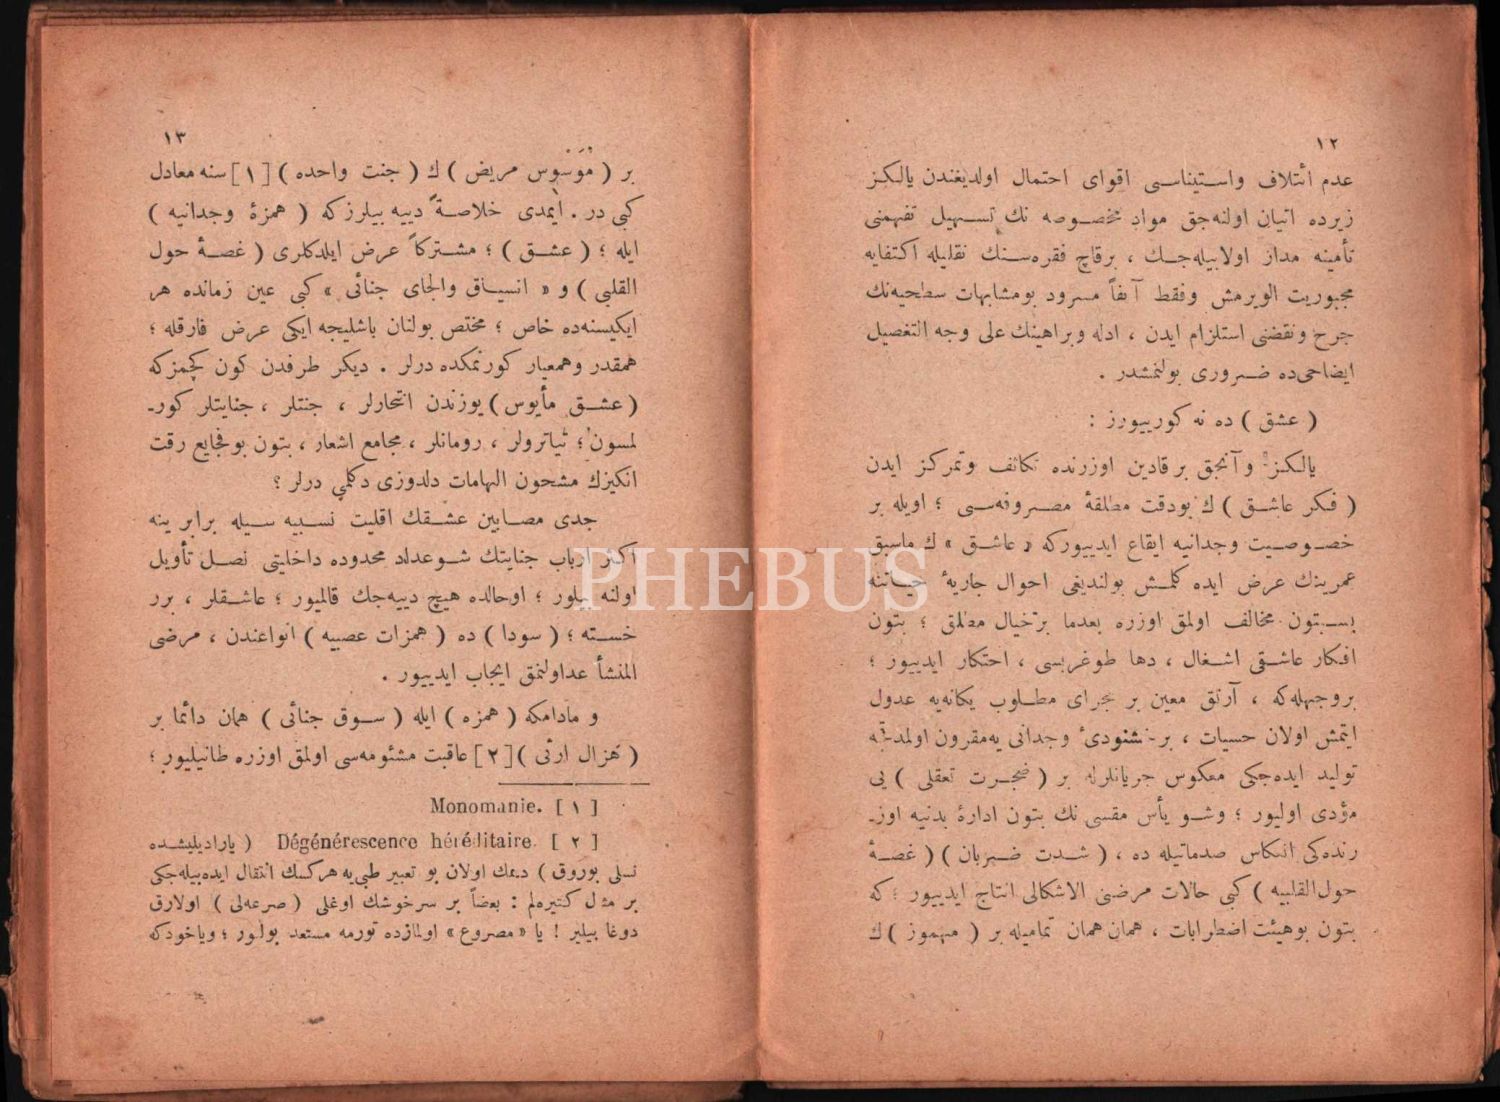 ١٢
عدم ائتلاف واستیناسی اقوای احتمال اولدیغندن یالکز
زیرده اتیان اولنه‌جق مواد مخصوصه نك تسهیل تفهمنی
تأمینه مدار اولابیله‌جك ، برقاچ فقره‌سنك نقلیله اکتفایه
مجبوریت الویرمش وفقط آنفاً مسرود بومشابهات سطحیه‌نك
جرح ونقضنی استلزام ایدن ، ادله وبراهینك علی وجه التفصیل
ایضاحی‌ده ضروری بولنمشدر .
( عشق ) ده نه کورییورز :
یالکز وآنجق برقادین اوزرنده تکاثف وتمرکز ایدن
( فکر عاشق ) ك بودقت مطلقهٔ مصروفه‌سی ؛ اویله بر
خصوصیت وجدانیه ایقاع ایدییورکه « عاشق » ك ماسبق
عمرینك عرض ایده کلمش بولندیغی احوال جاریهٔ حیاتنه
بسبتون مخالف اولمق اوزره بعدما برخیال مطلق ؛ بتون
افکار عاشقی اشغال ، دها طوغریسی ، احتکار ایدییور ؛
بروجهله‌که ، آرتق معین بر مجرای مطلوب یکانه‌یه عدول
ایتمش اولان حسیات ، بر خشنودیٔ وجدانی یه‌مقرون اولمدقجه
تولید ایده‌جکی معکوس جریانلرله بر ( ضجرت تعقلی ) یی
مؤدی اولیور ؛ وشو یأس مقسی نك بتون ادارهٔ بدنیه اوز-
رنده‌کی انعکاس صدماتیله ده ، ( شدت ضربان ) ( غصهٔ
حول القلبیه ) کبی حالات مرضی الاشکالی انتاج ایدییور ؛ که
بتون بوهیئت اضطرابات ، همان همان تمامیله بر ( مهموز ) ك
١٣
بر ( مُوَسْوِس مریض ) ك ( جنت واحده ) [ ١ ] سنه معادل
کبی در . ایمدی خلاصةً دییه بیلرزکه ( همزهٔ وجدانیه )
ایله ؛ ( عشق ) ؛ مشترکاً عرض ایلدکلری ( غصهٔ حول
القلبی ) و « انسیاق والجای جنائی » کبی عین زمانده هر
ایکیسنه‌ده خاص ؛ مختص بولنان باشلیجه ایکی عرض فارقله ؛
همقدر وهمعیار کورنمکده درلر . دیکر طرفدن کون کچمزکه
( عشق مأیوس ) یوزندن انتحارلر ، جنتلر ، جنایتلر کور-
لمسون ؛ تیاترولر ، رومانلر ، مجامع اشعار ، بتون بوفجایع رقت
انکیزك مشحون الهامات دلدوزی دکلمی درلر ؟
جدی مصابین عشقك اقلیت نسبیه سیله برابر ینه
اکثر ارباب جنایتك شوعداد محدوده داخلیتی نصل تأویل
اولنه بیلور ؛ اوحالده هیچ دییه‌جك قالمیور ؛ عاشقلر ، برر
خسته ؛ ( سودا ) ده ( همزات عصبیه ) انواعندن ، مرضی
المنشأ عداولنمق ایجاب ایدییور .
و مادامکه ( همزه ) ایله ( سوق جنائی ) همان دائما بر
( هزال ارثی ) [ ٢ ] عاقبت مشئومه‌سی اولمق اوزره طانیلیور ؛
[ ١ ] Monomanie.
[ ٢ ] Dégénérescence héréditaire. ( یارادیلیشده
نسلی بوروق ) دیمك اولان بو تعبیر طبی‌یه هرکسك انتقال ایده‌بیله‌جکی
بر مثل کتیره‌لم : بعضاً بر سرخوشك اوغلی ( صرعه‌لی ) اولارق
دوغا بیلیر ! یا « مصروع » اولمازده تورمه مستعد بولور ؛ ویاخودکه
PHEBUS